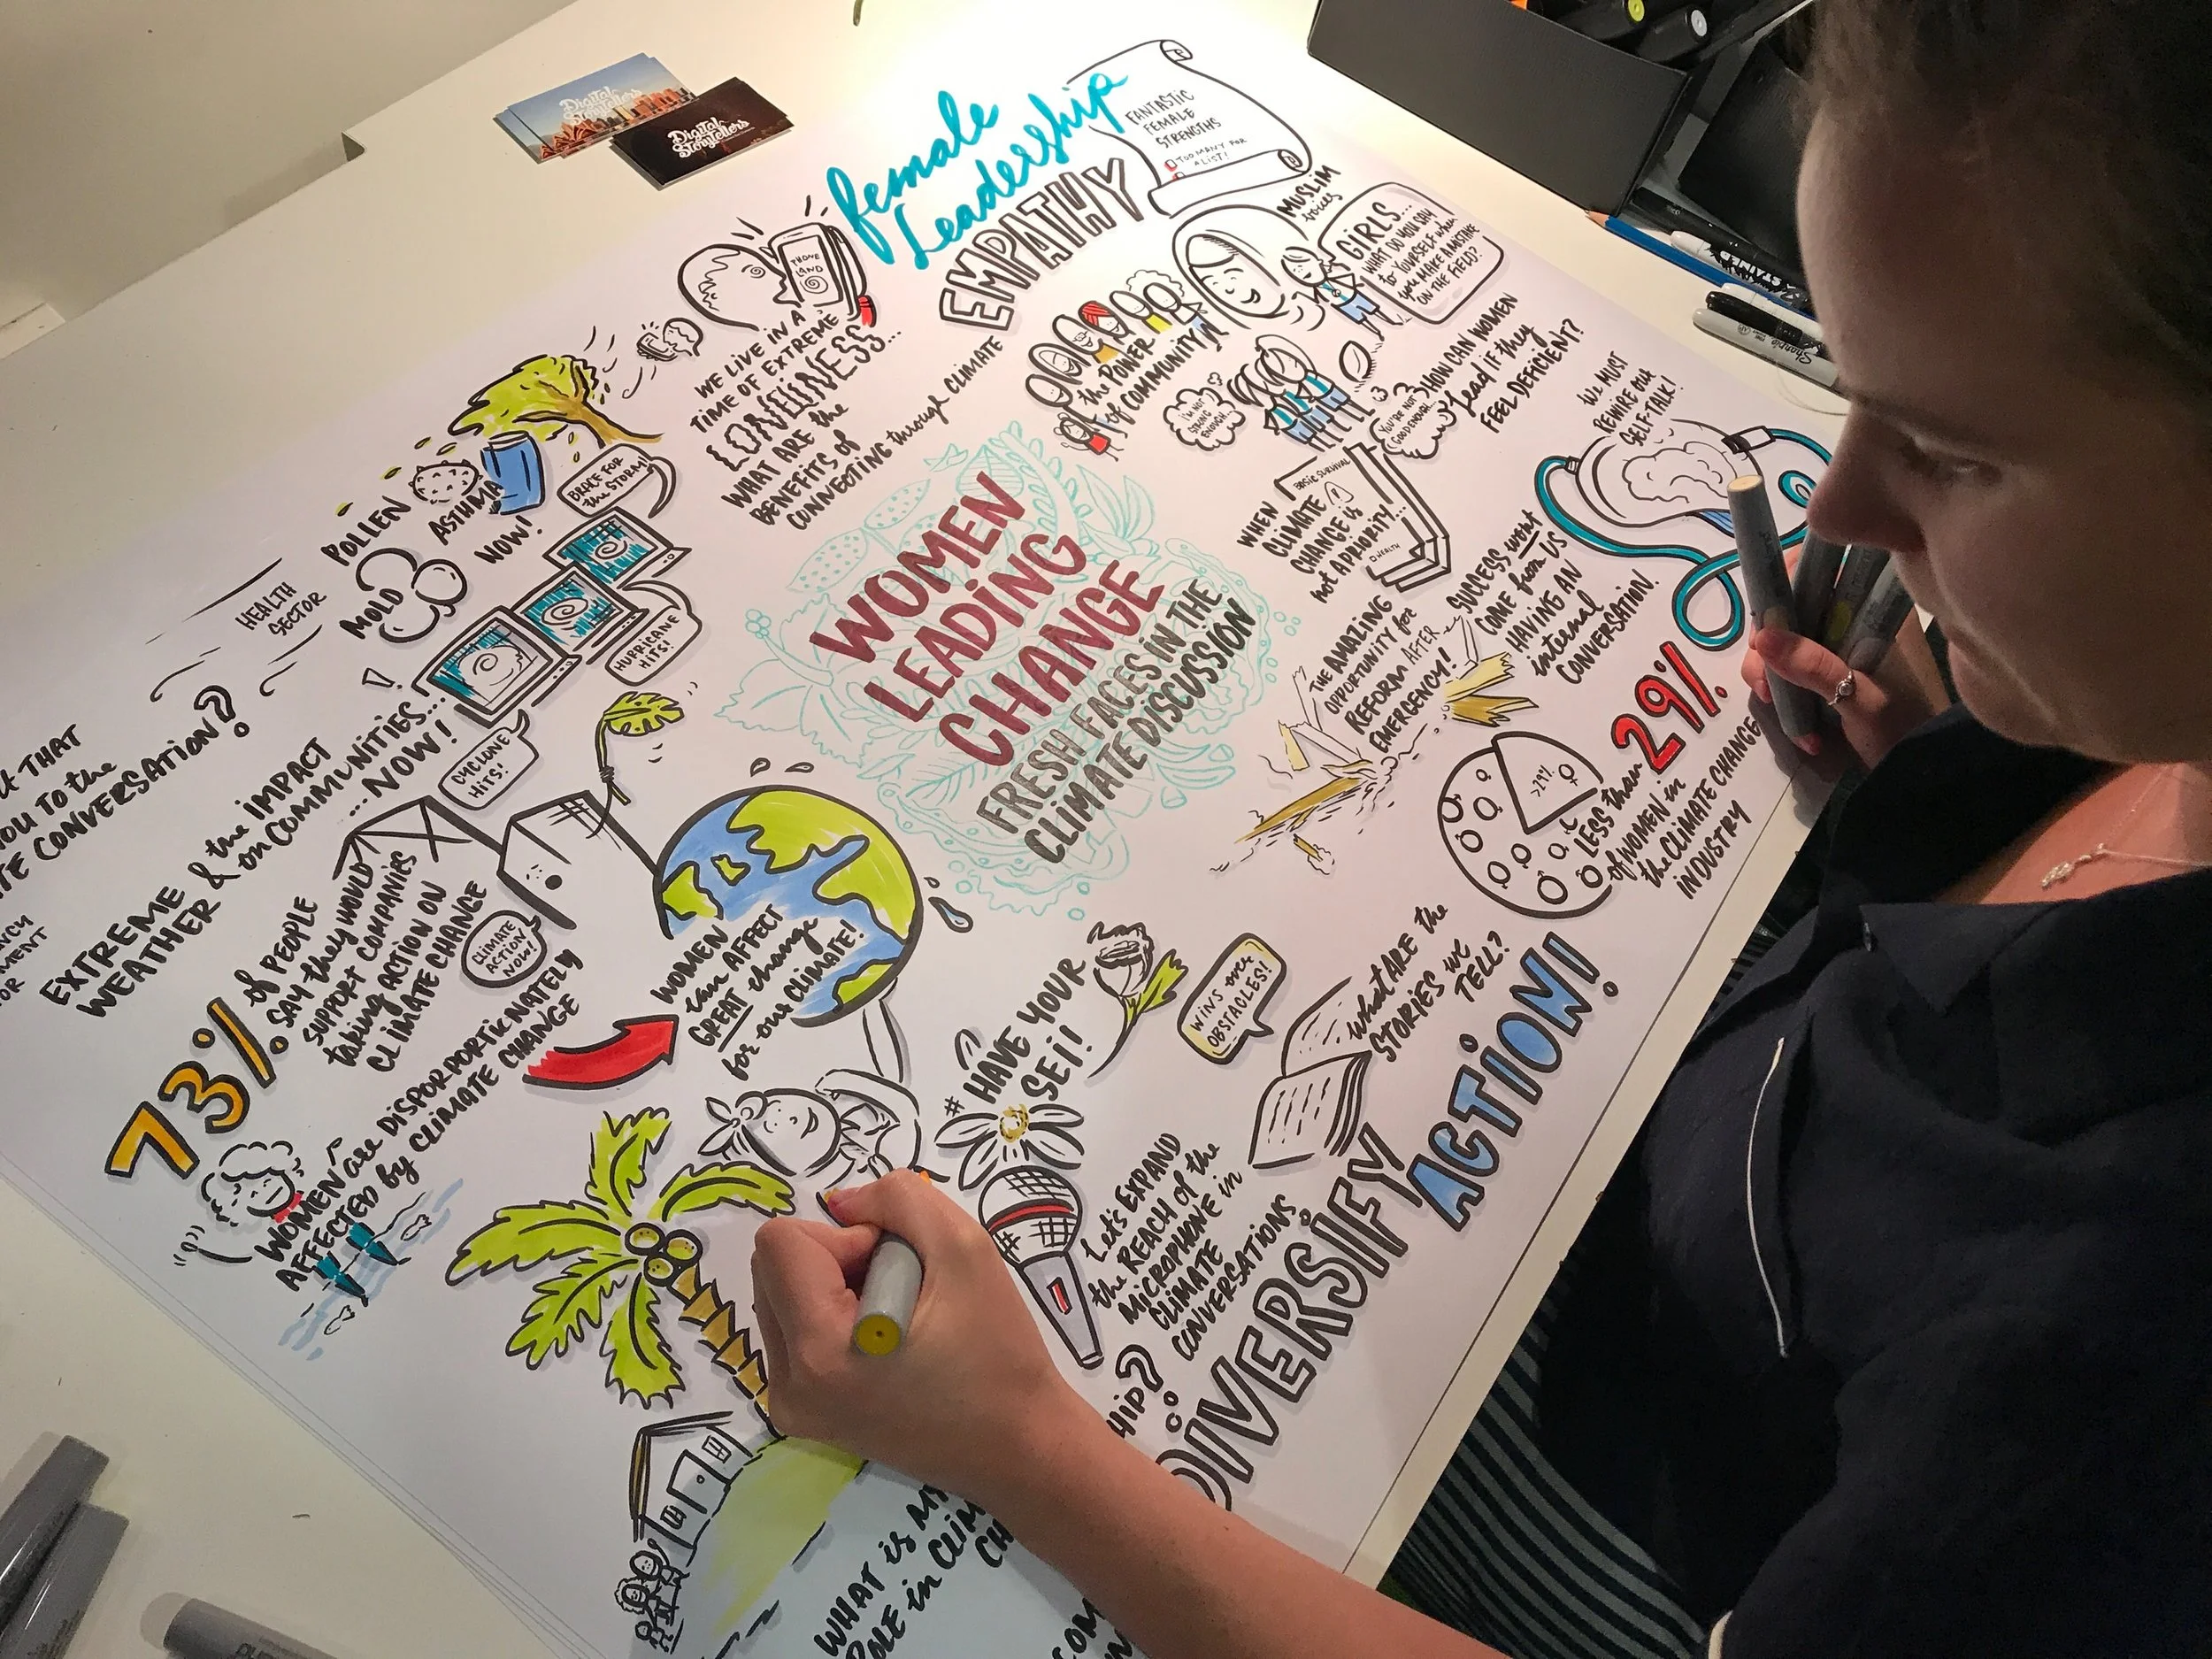 Digital
Storytellers
Digital
Storytellers
female
Leadership
FANTASTIC
FEMALE
STRENGTHS
TOO MANY FOR
A LIST!
EMPATHY
MUSLIM
voices
GIRLS...
WHAT DO YOU SAY
to YOURSELF when
you MAKE A MISTAKE
ON THE FIELD?
PHONE
LAND
WE LIVE IN A
TIME OF EXTREME
LONELINESS...
WHAT ARE the
BENEFITS of
CONNECTING through CLIMATE
the POWER
of COMMUNITY
I'M NOT
STRONG
ENOUGH
YOU'RE NOT
GOOD ENOUGH
HOW CAN WOMEN
lead IF they
FEEL DEFICIENT?
WE MUST
REWIRE OUR
SELF-TALK!
BRACE FOR
the STORM!
POLLEN
ASTHMA
NOW!
MOLD
HEALTH
SECTOR
HURRICANE
HITS!
CYCLONE
HITS!
WOMEN
LEADING
CHANGE
FRESH FACES IN THE
CLIMATE DISCUSSION
BASIC SURVIVAL
HEALTH
WHEN
CLIMATE
CHANGE is
not A PRIORITY!
SUCCESS won't
COME from US
HAVING AN
internal
CONVERSATION.
THE AMAZING
OPPORTUNITY for
REFORM AFTER
EMERGENCY!
>29%
LESS than 29%
of WOMEN in
the CLIMATE CHANGE
INDUSTRY
THAT
YOU TO the
CONVERSATION?
EXTREME & the IMPACT
WEATHER on COMMUNITIES...
...NOW!
73% of PEOPLE
SAY they WOULD
SUPPORT COMPANIES
taking ACTION ON
CLIMATE CHANGE
CLIMATE
ACTION
NOW!
WOMEN are DISPORPORTIONATELY
AFFECTED by CLIMATE CHANGE
WOMEN
can AFFECT
GREAT change
for our CLIMATE!
#HAVE YOUR
SEI!
WINS over
OBSTACLES!
WHAT ARE the
STORIES we
TELL?
Let's EXPAND
the REACH of the
MICROPHONE in
CLIMATE
CONVERSATIONS.
DIVERSIFY
ACTION!
WHAT is
ROLE in
Sharpie